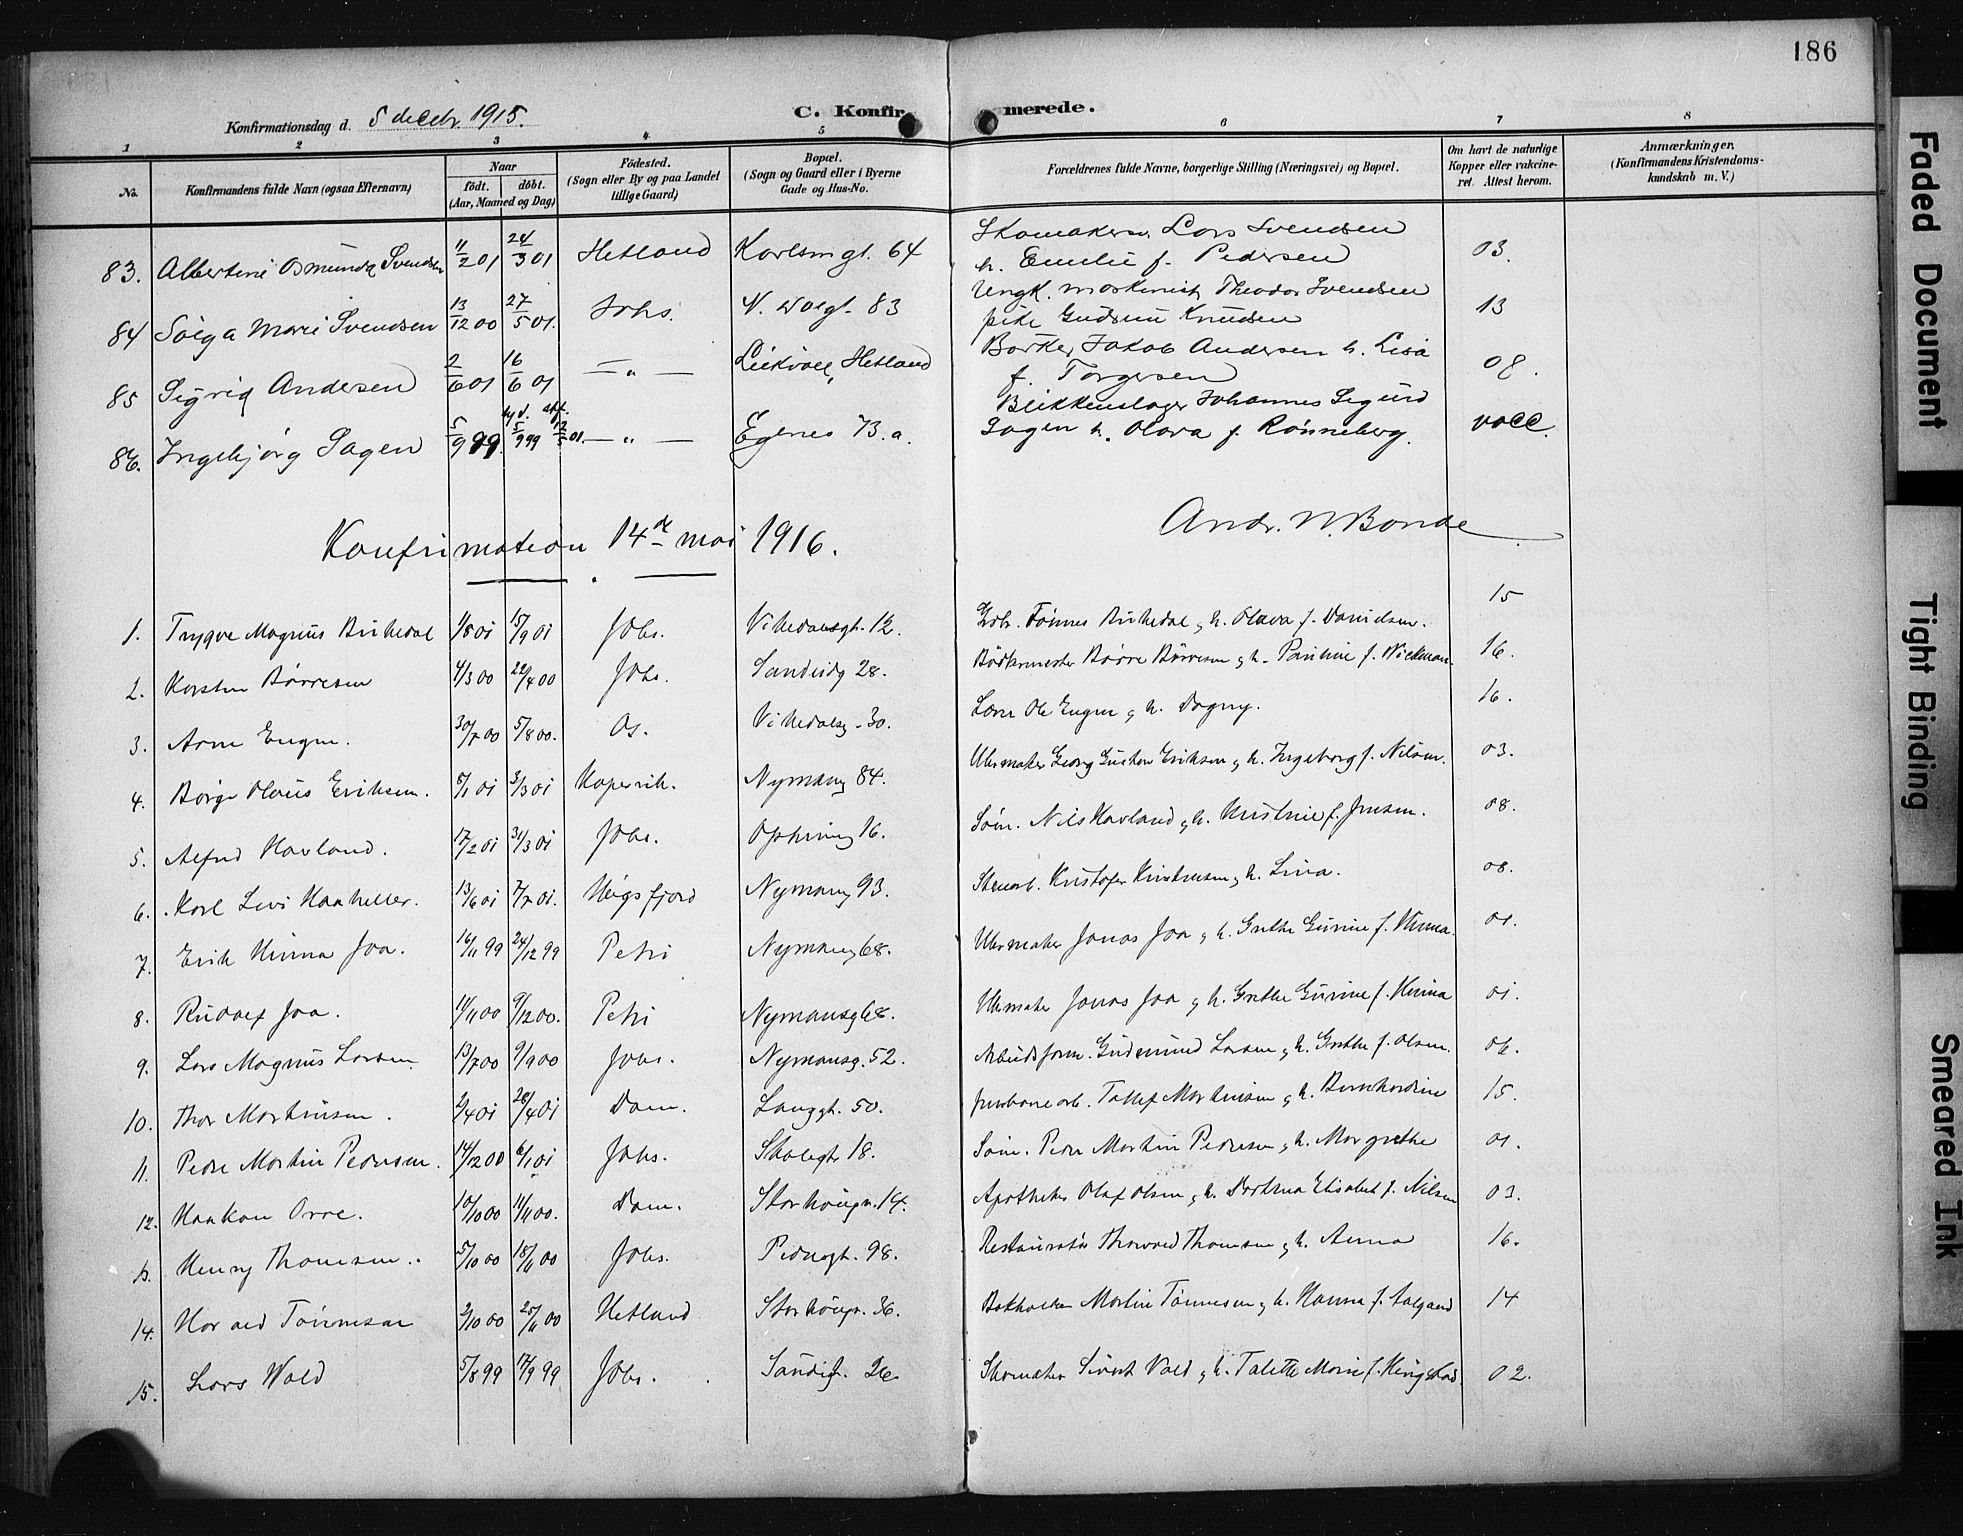 186
C. Konfirmerede.
Konfirmationsdag d. 5 decbr. 1915.
1 2 3 4 5 6 7 8
No. Konfirmandens fulde Navn (ogsaa Efternavn) Naar født. døbt. (Aar, Maaned og Dag) Fødested. (Sogn eller By og paa Landet tillige Gaard) Bopæl. (Sogn og Gaard eller i Byerne Gade og Hus-No. Forældrenes fulde Navne, borgerlige Stilling (Næringsvei) og Bopæl. Om havt de naturlige Kopper eller vakcineret. Attest herom. Anmærkninger. (Konfirmandens Kristendomskundskab m. V.)
83. Albertine Osmunda Svendsen 11/2 01 24/3 01 Hetland Karlsmgt. 64 Skomaker Lars Svendsen h. Emilie f. Pedersen 03.
84 Solga Marie Svendsen 13/12 00 27/5 01. Johs. N. Wolgt. 83 Ungk. maskinist Theodor Svendsen pike Gudrun Knudsen 13
85 Sigrid Andersen 2/6 01 16/6 01 — " — Hetland Jakob Andersen h. Lisa f. Torgersen 08.
86. Ingebjørg Sagen 5/9 99. 5/9 99 — " — Egenes 73.a. Blikkenslager Johannes Sigurd Sagen h. Olava f. Rønneberg. vacc.
Andr. N. Bonde
Konfirmation 14de mai 1916.
1. Trygve Magnus Birkedal 1/8 01 15/9 01 Johs. Vikedalsgt. 12. Tønnes Birkedal & h. Olava f. Danielsen. 15
2. Karsten Børresen 4/3 00 22/4 00 Johs. Sandeidg 28. Bødkermester Børre Børresen & h. Pauline f. Wickman. 16.
3. Arne Engen. 30/7 00 5/8 00. Os. Vikedalsg. 30. Lærer Ole Engen & h. Dagny. 16.
4. Børge Olaus Eriksen. 5/1 01 3/3 01 Kopervik. Nymansg 84. Uhrmaker Georg Gustav Eriksen & h. Ingeborg f. Nilsen. 03.
5. Alfred Havland. 17/2 01 31/3 01 Johs. 16. Søm. Nils Havland & h. Kristine f. Jensen. 08.
6. Karl Levi Haaheller. 13/6 01 7/7 01. Høgsfjord Nymansg 93. Stenarb. Kristofer Kristensen & h. Lina. 08.
7. Erik Hinna Joa. 16/11 99 24/12 99 Petri Nymansg 68. Uhrmaker Jonas Joa & h. Grethe Gurine f. Hinna. 01.
8. Rudolf Joa. 14/11 00 9/12 00. Petri Nymansg 68. Uhrmaker Jonas Joa & h. Grethe Gurine f. Hinna 01.
9. Lars Magnus Larsen 13/7 00 9/9 00 Johs. Nymansg. 52. Arbeidsform. Gudmund Larsen & h. Grethe f. Olsen.
10. Thor Martinsen. 2/4 01 28/4 01 Dom. Langgt. 50. Jernbanearb. Tollef Martinsen & h. Bernhardine 15.
11. Peder Martin Pedersen. 14/12 00 6/1 01 Johs. Skolegt 18. Søm. Peder Martin Pedersen & h. Margrethe 01.
12. Haakon Orre. 10/10 00 11/11 00. Dom. Storhaugv. 14. Apotheker Olaf Olsen & h. Elisabet f. Nilsen 03.
13. Henry Thomsen. 5/10 00 18/11 00 Johs. Pedersgt. 98. Restauratør Thorvald Thomsen & h. Anna 16.
14. Harald Tønnesen 2/10 00 25/11 00 Hetland Storhaugv. 36. Bokholder Martin Tønnesen & h. Hanna f. Aalgaard 14
15. Lars Wold 5/8 99 17/9 99 Johs. Sandeidgt. 26 Skomaker Sivert Vold & h. Talette Marie f. 02.
Faded Document
Tight Binding
Smeared Ink